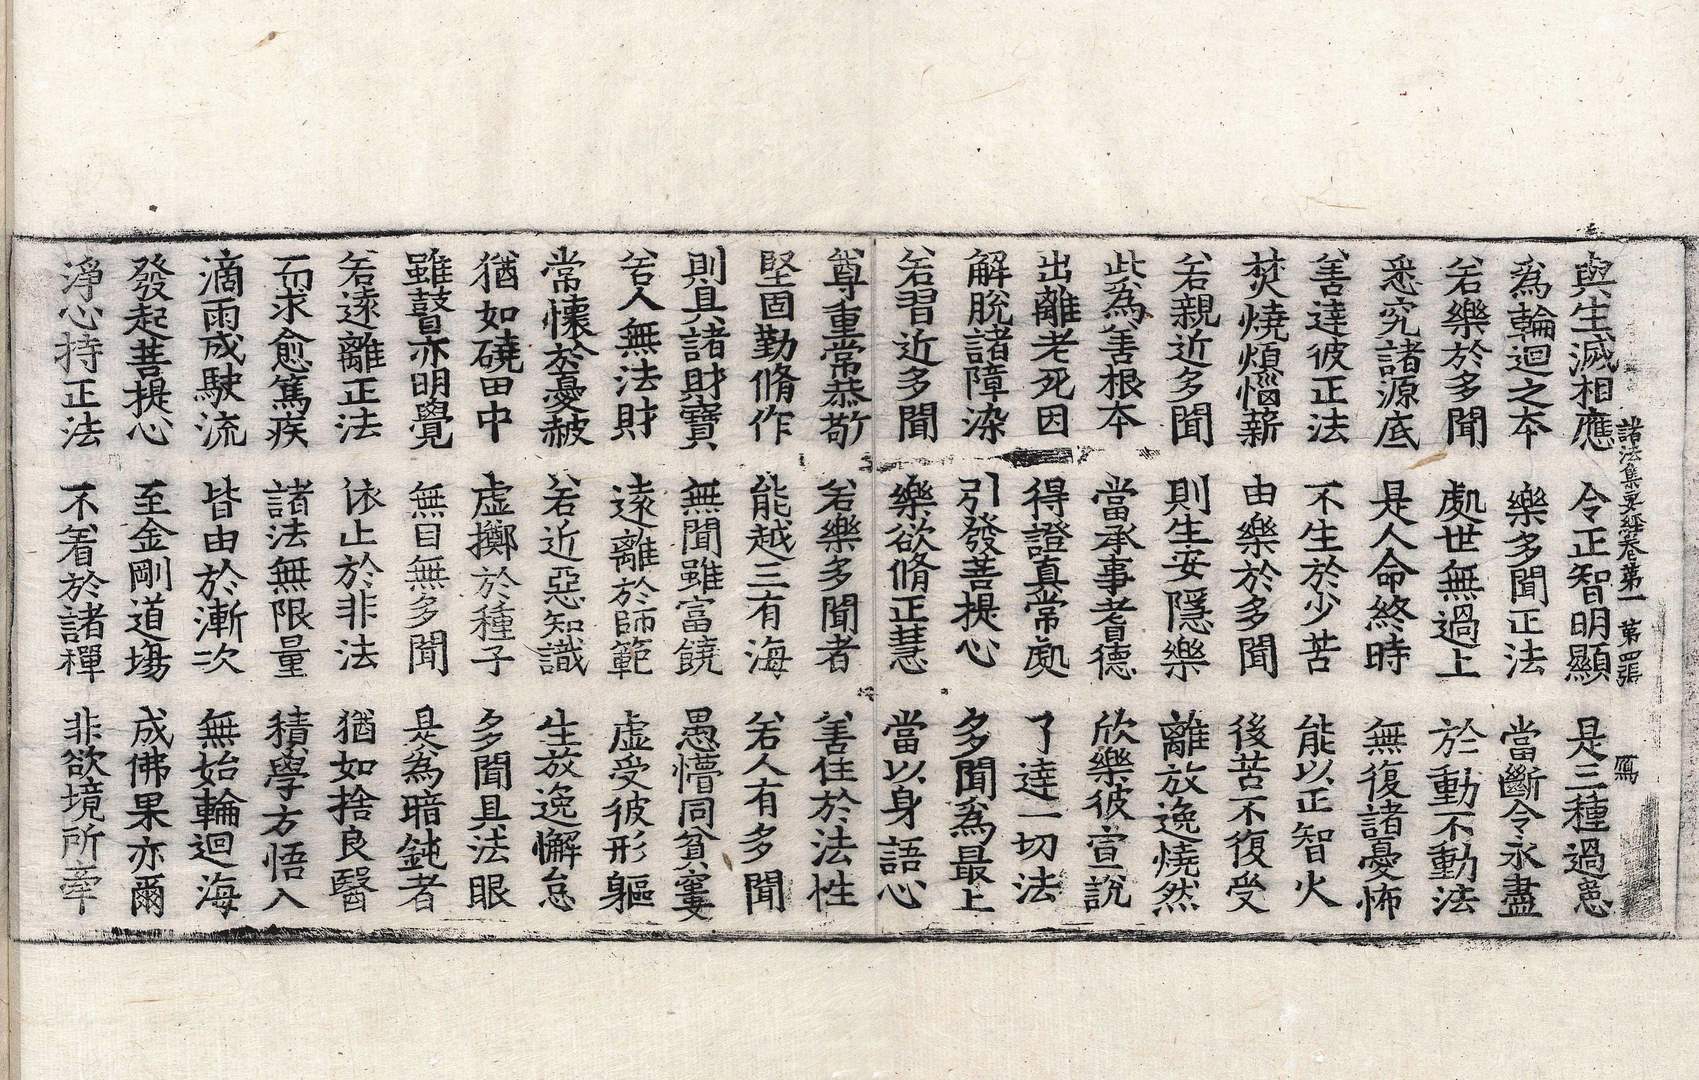 諸法集要經卷第一 第四張 鴈
與生滅相應 令正智明顯 是三種過患
為輪迴之本 樂多聞正法 當斷令永盡
若樂於多聞 處世無過上 於動不動法
悉究諸源底 是人命終時 無復諸憂怖
善達彼正法 不生於少苦 能以正智火
焚燒煩惱薪 由樂於多聞 後苦不復受
若親近多聞 則生安隱樂 離放逸燒然
此為善根本 當承事耆德 欣樂彼宣說
出離老死因 得證真常處 了達一切法
解脫諸障染 引發菩提心 多聞為最上
若習近多聞 樂欲脩正慧 當以身語心
尊重常恭敬 若樂多聞者 善住於法性
堅固勤脩作 能越三有海 若人有多聞
則具諸財寶 無聞雖富饒 愚懵同貧窶
若人無法財 遠離於師範 虛受彼形軀
常懷於憂赧 若近惡知識 生放逸懈怠
猶如磽田中 虛擲於種子 多聞具法眼
雖瞽亦明覺 無目無多聞 是為暗鈍者
若遠離正法 依止於非法 猶如捨良醫
而求愈篤疾 諸法無限量 積學方悟入
滴雨成駛流 皆由於漸次 無始輪迴海
發起菩提心 至金剛道場 成佛果亦爾
淨心持正法 不著於諸禪 非欲境所牽